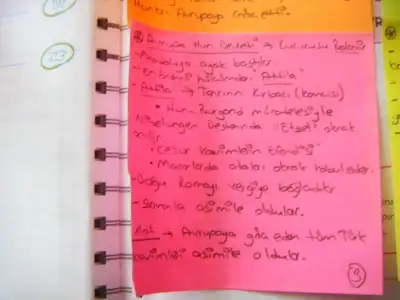 Hunları Avrupaya göç etti.
* Avrupa Hun Devleti → Kurucusu Balamir
- Anadoluya ayak bastılar
- En önemli hükümdarı Attila
- Attila → Tanrının Kırbacı (komutan)
• Hun-Burgond mücadelesiyle
Nibelungen Destanında "Etzel" olarak
anılır
• "Cesur kavimlerin Efendisi"
• Macarlarda ataları olarak kabul eder.
- Doğu Romayı vergiye bağladılar
- Zamanla asimile oldular.
Not → Avrupaya göç eden tüm Türk
kavimleri asimile oldular.
3
253